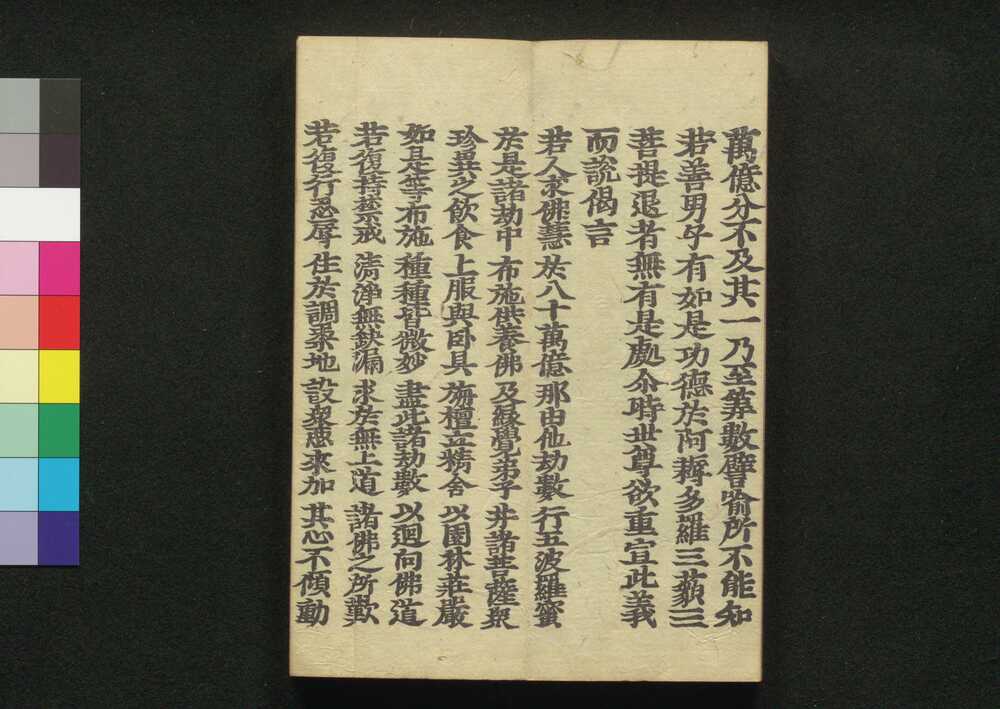 萬億分不及其一乃至筭數譬喻所不能知
若善男子有如是功德於阿耨多羅三藐三
菩提退者無有是處尒時世尊欲重宣此義
而說偈言
若人求佛慧 於八十萬億 那由他劫數 行五波羅蜜
於是諸劫中 布施供養佛 及緣覺弟子 并諸菩薩衆
珍異之飲食 上服與卧具 旃檀立精舍 以園林莊嚴
如是等布施 種種皆微妙 盡此諸劫數 以迴向佛道
若復持禁戒 清淨無缺漏 求於無上道 諸佛之所歎
若復行忍辱 住於調柔地 設衆惡來加 其心不傾動